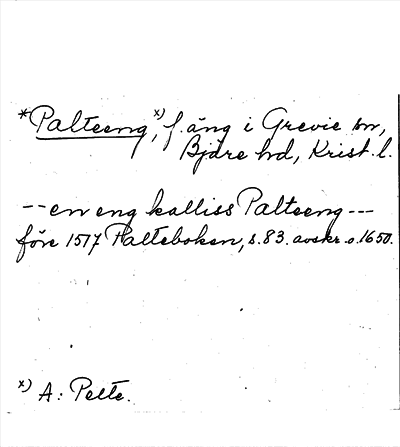 *Palteeng,ˣ⁾ f. äng i Grevie sn,
Bjäre hd, Krist. l.
-- en eng kalliss Palteeng ---
före 1517 Palteboken, s. 83. avskr. o. 1650.
ˣ⁾ A: Pelte.